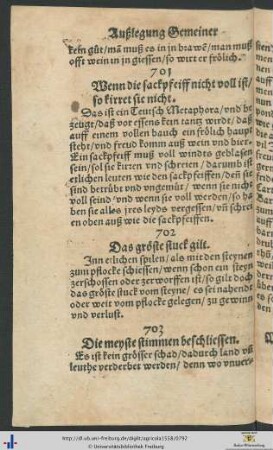 Außlegung Gemeiner
kein gůt/ mā muß es in jn brawē/ man muß
offt wein in jn giessen/ so wirt er frölich.
701
Wenn die sackpfeiff nicht voll ist/
so kirret sie nicht.
Das ist ein Teutsch Metaphora/ vnd be
zeugt/ daß vor essens kein tantz wirdt/ daß
auff einem vollen bauch ein frölich haupt
steht/ vnd freud komm auß wein vnd bier.
Ein sackpfeiff muß voll windts geblasen
sein/ sol sie kirren vnd schreien/ darumb ist
etlichen leuten wie den sackpfeiffen/ deñ sie
sind betrübt vnd vngemůt/ wenn sie nicht
voll seind/ vnd wenn sie voll werden/ so ha
ben sie alles jres leyds vergessen/ vñ schrei
en oben auß wie die sackpfeiffen.
702
Das gröste stuck gilt.
Inn etlichen spilen/ als mit den steynen
zum pflocke schiessen/ wenn schon ein steyn
zerschossen oder zerworffen ist/ so gilt doch
das gröste stuck vom steyne/ es sei nahendt
oder weit vom pflocke gelegen/ zu gewinn
vnd verlust.
703
Die meyste stimmen beschliessen.
Es ist kein grösser schad/ dadurch land vñ
leuthe verderbet werden/ denn wo vnuer-
http://dl.ub.uni-freiburg.de/diglit/agricola1558/0792
© Universitätsbibliothek Freiburg